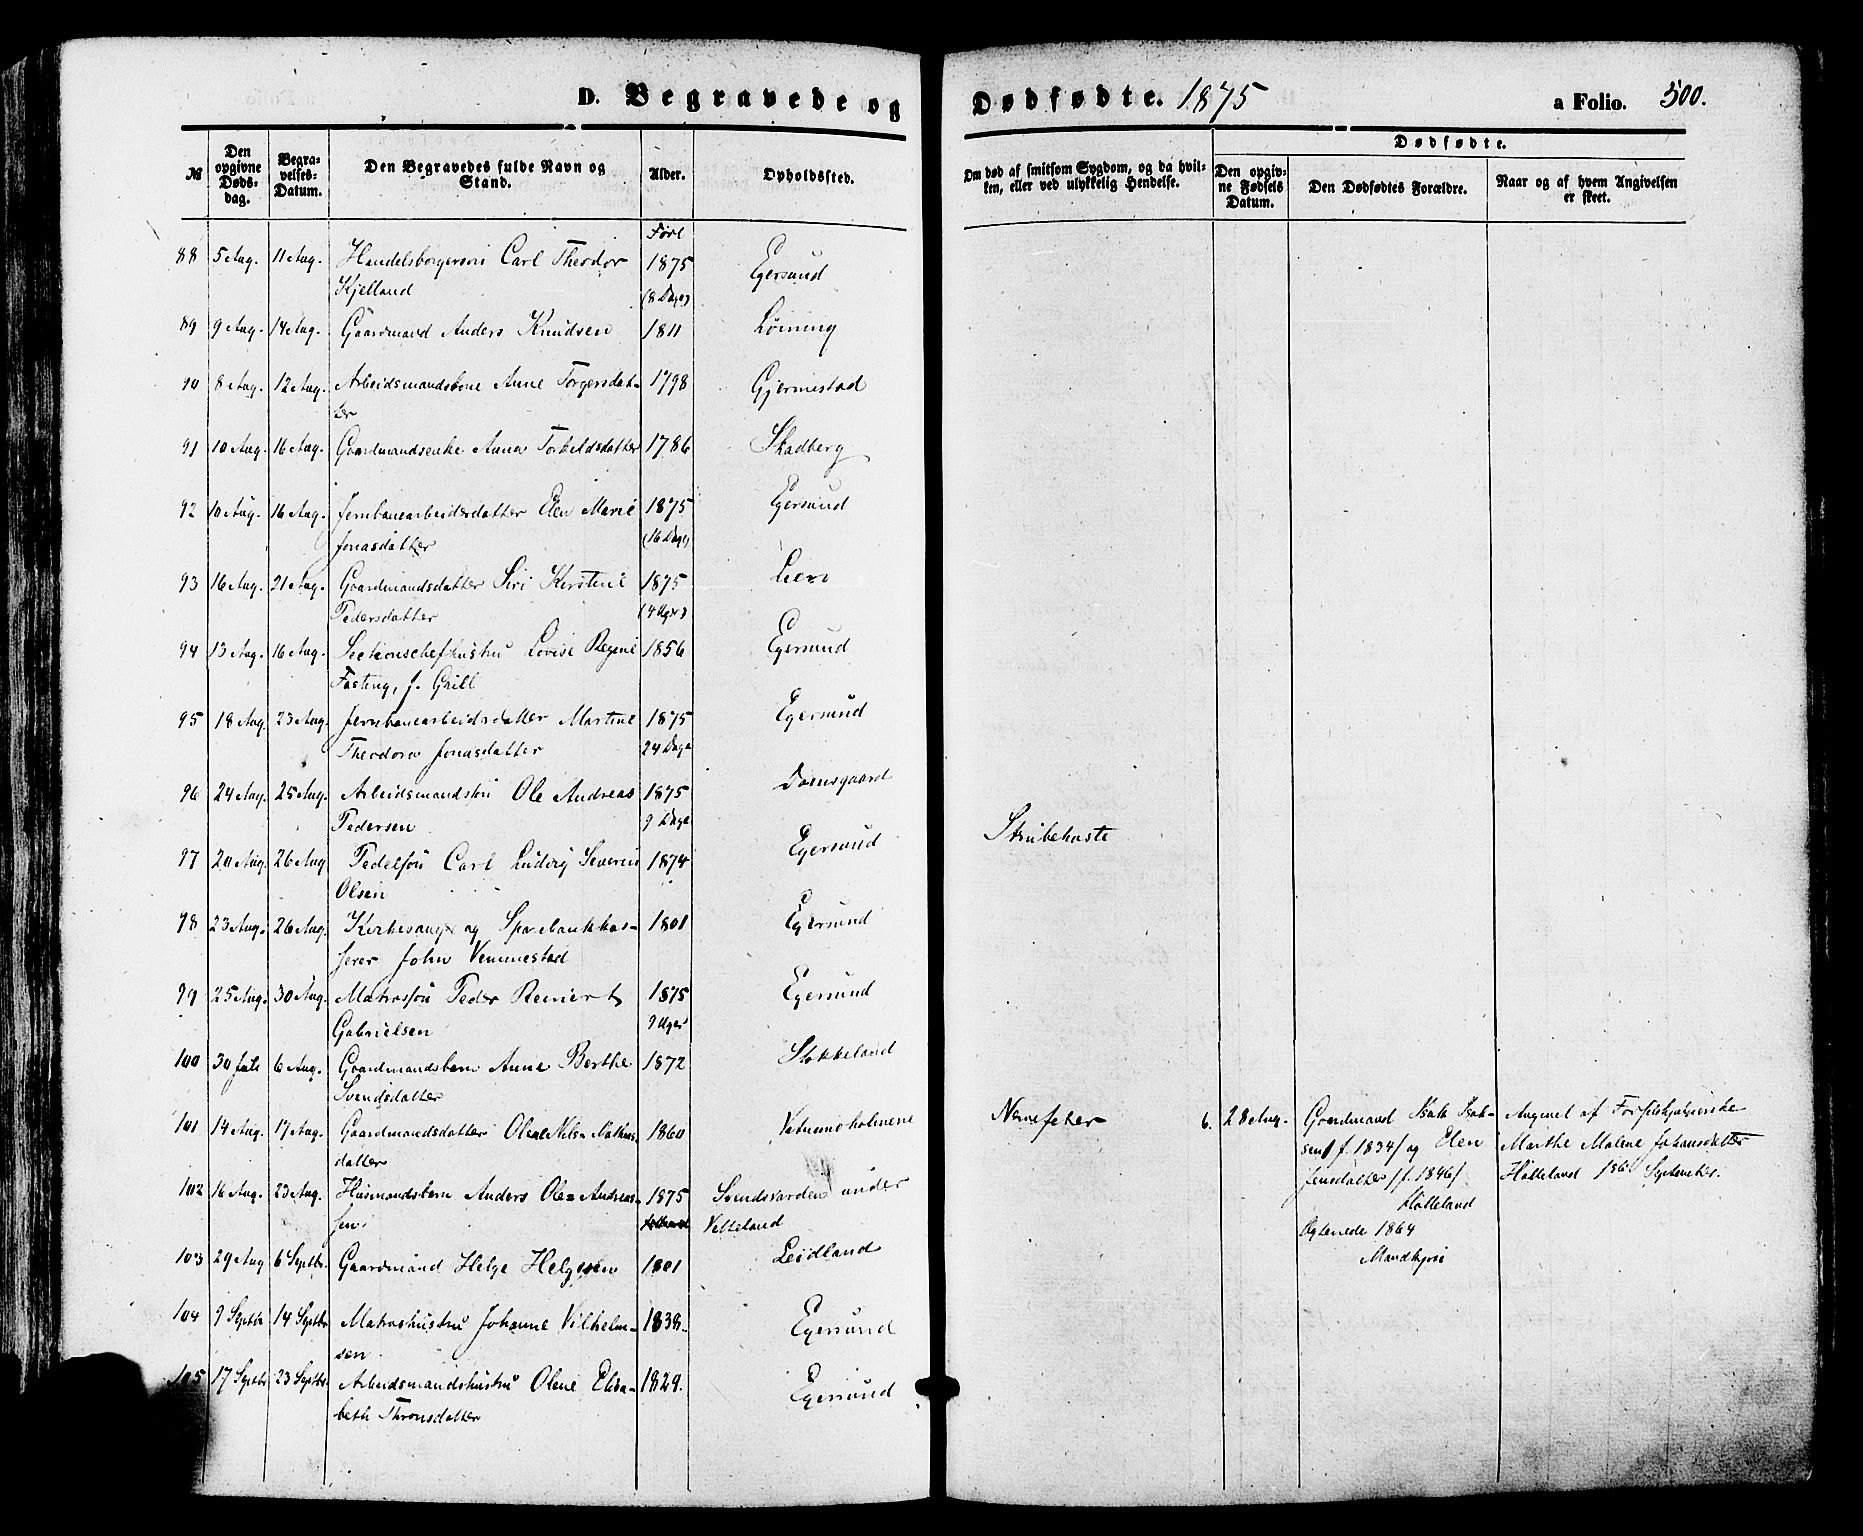 D. Begravede og
Dødfødte. 1875
a Folio. 500.
№
Den opgivne Døds-dag.
Begra-velses-Datum.
Den Begravedes fulde Navn og Stand.
Alder.
Opholdssted.
Om død af smitsom Sygdom, og da hvil-ken, eller ved ulykkelig Hendelse.
Dødfødte.
Den opgiv-ne Fødsels Datum.
Den Dødfødtes Forældre.
Naar og af hvem Angivelsen er skeet.
88 5 Aug. 11 Aug. Handelsborgersøn Carl Theodor 1875 Egersund
Kjelland (8 Dage)
89 9 Aug. 14 Aug. Gaardmand Anders Knudsen 1811
90 8 Aug. 12 Aug. Arbeidsmandskone Anne Torgersdat- 1798 Gjermestad
ter
91 10 Aug. 16 Aug. Gaardmandsenke Anna Torkeldsdatter 1786 Skadberg
92 10 Aug. 16 Aug. Jernbanearbeidersdatter Elen Marie 1875 Egersund
Jonasdatter (16 Dage)
93 16 Aug. 21 Aug. Gaardmandsdatter Siri Kirstine 1875
Pedersdatter (4 Uger)
94 13 Aug. 16 Aug. Sectionschefhustru Lovise Regine 1856 Egersund
Fasting, f. Grill
95 18 Aug. 23 Aug. Jernbanearbeidsdatter Martine 1875 Egersund
Theodora Jonasdatter 24 Dage
96 24 Aug. 25 Aug. Arbeidsmandssøn Ole Andreas 1875
Pedersen 9 Dage
97 20 Aug. 26 Aug. Carl Ludvig Severin 1874 Egersund Strubehoste
Olsen
98 23 Aug. 26 Aug. Kirkesanger og Sparebankkas- 1801 Egersund
serer John Vemmestad
99 25 Aug. 30 Aug. Matrossøn Peder Reinert 1875 Egersund
Gabrielsen 9 Uger
100 30 Juli 6 Aug. Gaardmandsbarn Anne Berthe 1872 Stokkeland
Svendsdatter
101 14 Aug. 17 Aug. Gaardmandsdatter 1860 Nervefeber
datter
6. 28 Aug. Gaardmand Isak Isak-
sen (f. 1834) og Elen
Jensdatter (f. 1846)
Hølleland
Egteviede 1864
Mandkjøn
Angivet af
Marthe Malene Johansdatter
Hølleland September.
102 16 Aug. 23 Aug. Husmandsbarn Anders Ole Andreas- 1875 under
sen
103 29 Aug. 6 Septbr. Gaardmand Helge Helgesen 1801 Leidland
104 9 Septbr 14 Septbr Matroshustru Johanne Vilhelm- 1838. Egersund
sen
105 17 Septbr 23 Septbr. Arbeidsmandshustru Olene Elisa- 1829. Egersund
beth Thronsdatter